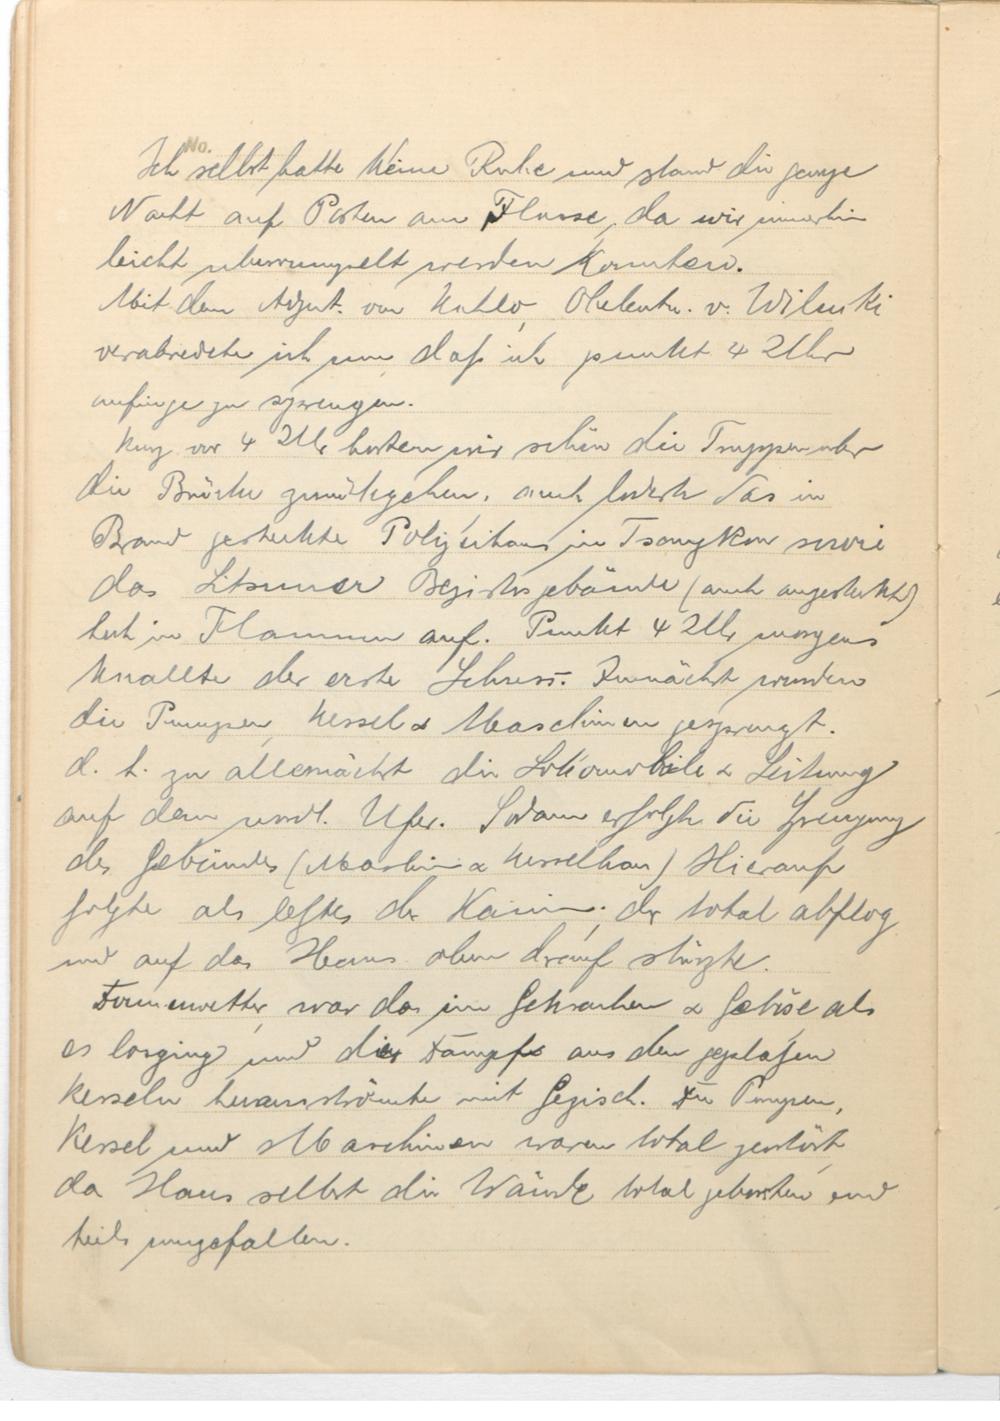 No.
Ich selbst hatte keine Ruhe und stand die ganze
Nacht auf Posten am Flusse, da wir immerhin
leicht uberrumpelt werden konnten.
Mit dem Adjut. von Kuhlo, Oblentn. v.
verabredete ich nun daß ich punkt 4 Uhr
anfinge zu sprengen.
Kurz vor 4 Uhr horten wir schon die Truppen uber
die Brücke zurückgehen, auch loderte das in
Brand gesteckte Polizeihaus in Tsangkou sowie
das Litsuner Bezirksgebäude (auch angesteckt)
hoch in Flammen auf. Punkt 4 Uhr morgens
knallte der erste Schuss. Zunächst wurden
die Pumpen, Kessel & Maschinen gesprengt.
d. h. zu allernächst die Lokomobile & Leitung
auf dem nordl. Ufer. Sodann erfolgte die Sprengung
des Gebäudes (Maschin & Kesselhaus) Hierauf
folgte als lestes der Kamin, der total abflog
und auf das Haus oben drauf stürzte.
Donnerwetter, war das ein Gekrachen & Getöse als
es losging und die Dämpfe aus den geplatzen
Kesseln herausströmte mit Gezisch. Die Pumpen,
Kessel und Maschinen waren total zerstört,
da Haus selbst die Wände total geborsten und
teils umgefallen.